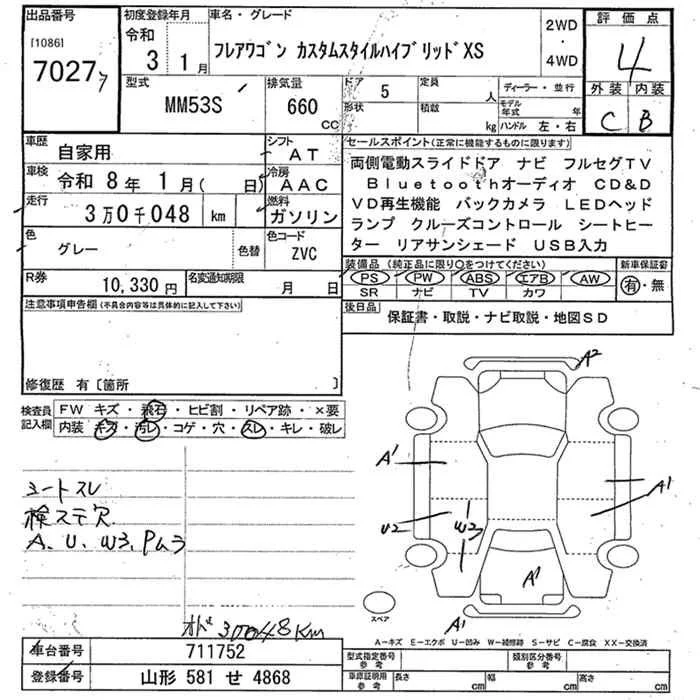 出品番号
[1086]
70277
初度登録年月
令和
3 1月
車名・グレード
フレアワゴン カスタムスタイルハイブリッドXS
2WD
・
4WD
評価点
4
外装 内装
C B
型式
MM53S
排気量
660 CC
ドア 5
形状
定員 人
積載 kg
ディーラー・並行
モデル年式 年
ハンドル 左・右
車歴
自家用
シフト
AT
車検
令和 8年 1月( 日)
冷房
AAC
走行
3万0千048 km
燃料
ガソリン
色
グレー
色替
色コード
ZVC
R券
10,330円
名変通知期限
月 日
セールスポイント(正常に機能するものに限ります)
両側電動スライドドア ナビ フルセグTV
BluetoothオーディオCD&D
VD再生機能 バックカメラ LEDヘッド
ランプ クルーズコントロール シートヒー
ター リアサンシェード USB入力
装備品(純正品に限り○をつけてください)
PS PW ABS エアB AW
SR ナビ TV カワ
新車保証書
有・無
後日品
保証書・取説・ナビ取説・地図SD
注意事項申告欄(不具合内容等は具体的に記入して下さい)
修復歴 有〔箇所 〕
検査員
記入欄
FW キズ・飛石・ヒビ割・リペア跡・×要
内装 キズ・汚レ・コゲ・穴・スレ・キレ・破レ
シートスレ
検ステ穴
A、U、W3、Pムラ
オド30048Km
A2
A1
A1
U2
W3
A1
A1
スペア
A-キズ E-エクボ U-凹み W-補修跡 S-サビ C-腐食 XX-交換済
車台番号
711752
登録番号
山形 581 せ 4868
型式指定番号
参考
類別区分番号
参考
車庫証明用
参考
長さ cm
幅 cm
高さ cm